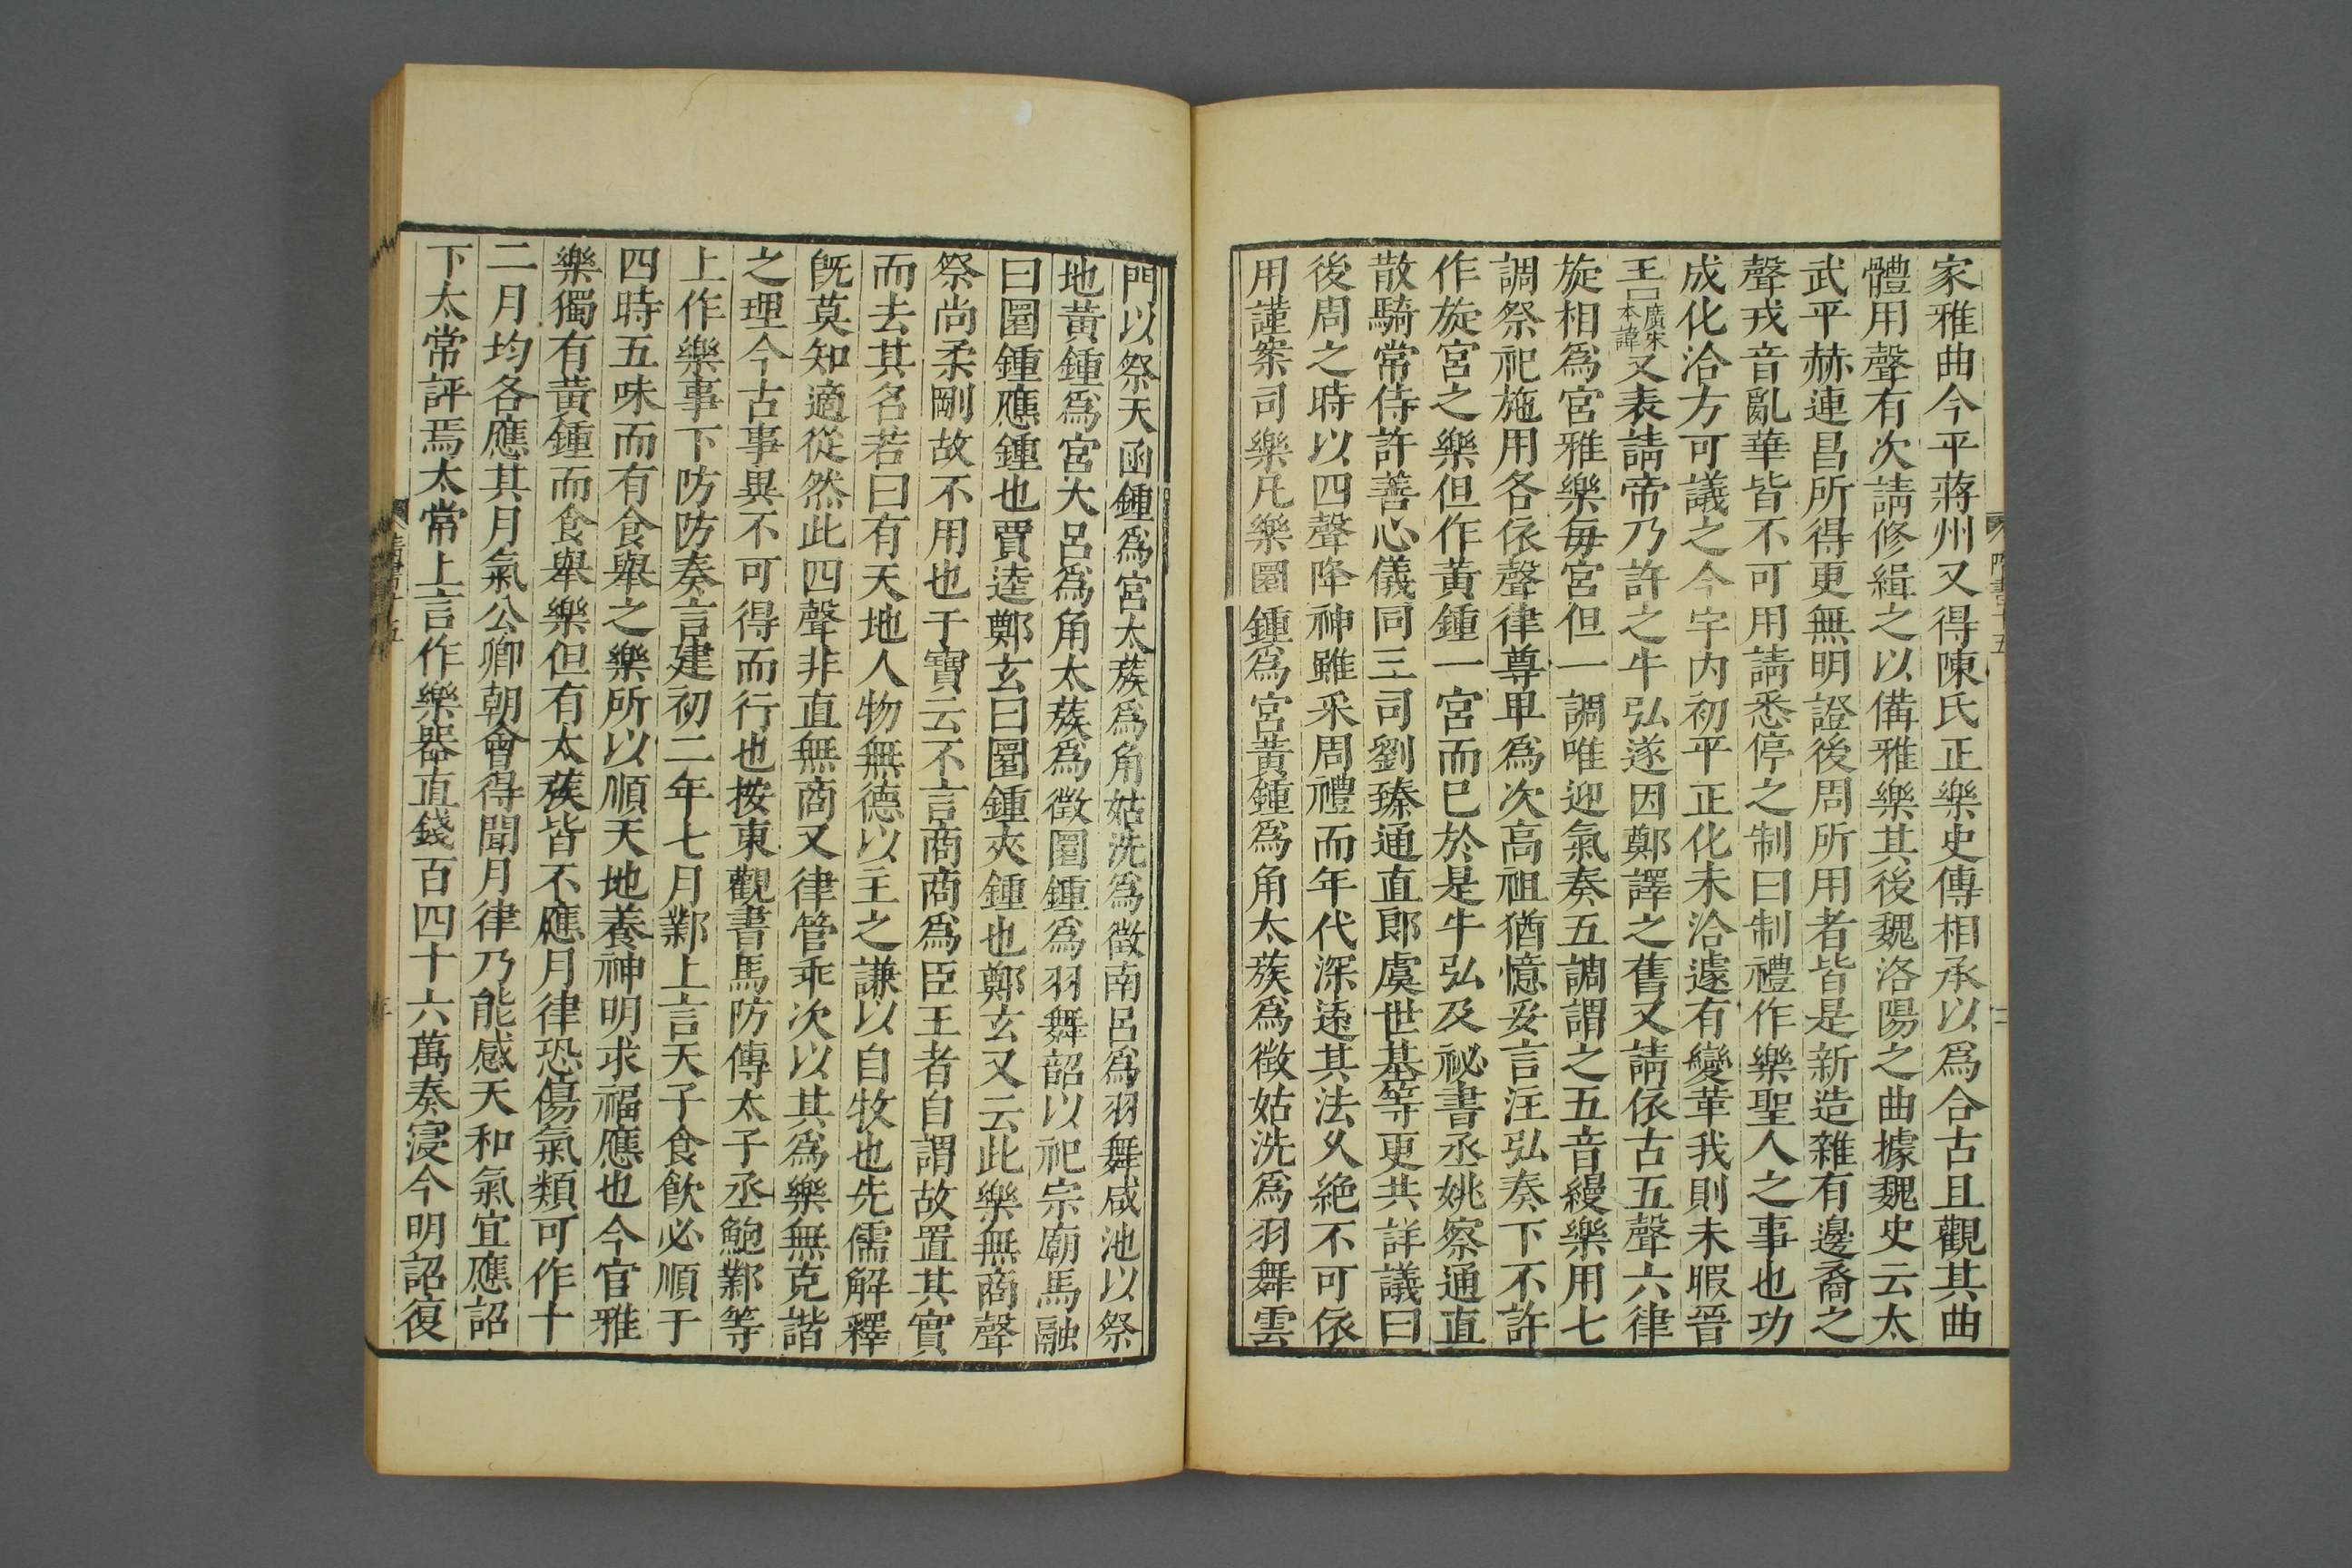 家雅曲今平蔣州又得陳氏正樂史傳相承以爲合古且觀其曲
體用聲有次請修緝之以備雅樂其後魏洛陽之曲據魏史云太
武平赫連昌所得更無明證後周所用者皆是新造雜有邊裔之
聲戎音亂華皆不可用請悉停之制曰制禮作樂聖人之事也功
成化洽方可議之今宇內初平正化未洽遽有變革我則未暇晉
王廣宋本諱又表請帝乃許之牛弘遂因鄭譯之舊又請依古五聲六律
旋相爲宮雅樂每宮但一調唯迎氣奏五調謂之五音縵樂用七
調祭祀施用各依聲律尊卑爲次高祖猶憶妥言注弘奏下不許
作旋宮之樂但作黃鍾一宮而已於是牛弘及祕書丞姚察通直
散騎常侍許善心儀同三司劉臻通直郎虞世基等更共詳議曰
後周之時以四聲降神雖采周禮而年代深遠其法久絕不可依
用謹案司樂凡樂圜鍾爲宮黃鍾爲角太蔟爲徵姑洗爲羽舞雲
門以祭天函鍾爲宮太蔟爲角姑洗爲徵南呂爲羽舞咸池以祭
地黃鍾爲宮大呂爲角太蔟爲徵圜鍾爲羽舞韶以祀宗廟馬融
曰圜鍾應鍾也賈逵鄭玄曰圜鍾夾鍾也鄭玄又云此樂無商聲
祭尚柔剛故不用也干寶云不言商商爲臣王者自謂故置其實
而去其名若曰有天地人物無德以主之謙以自牧也先儒解釋
旣莫知適從然此四聲非直無商又律管乖次以其爲樂無克諧
之理今古事異不可得而行也按東觀書馬防傳太子丞鮑鄴等
上作樂事下防防奏言建初二年七月鄴上言天子食飲必順于
四時五味而有食舉之樂所以順天地養神明求福應也今官雅
樂獨有黃鍾而食舉樂但有太蔟皆不應月律恐傷氣類可作十
二月均各應其月氣公卿朝會得聞月律乃能感天和氣宜應詔
下太常評焉太常上言作樂器直錢百四十六萬奏寖今明詔復